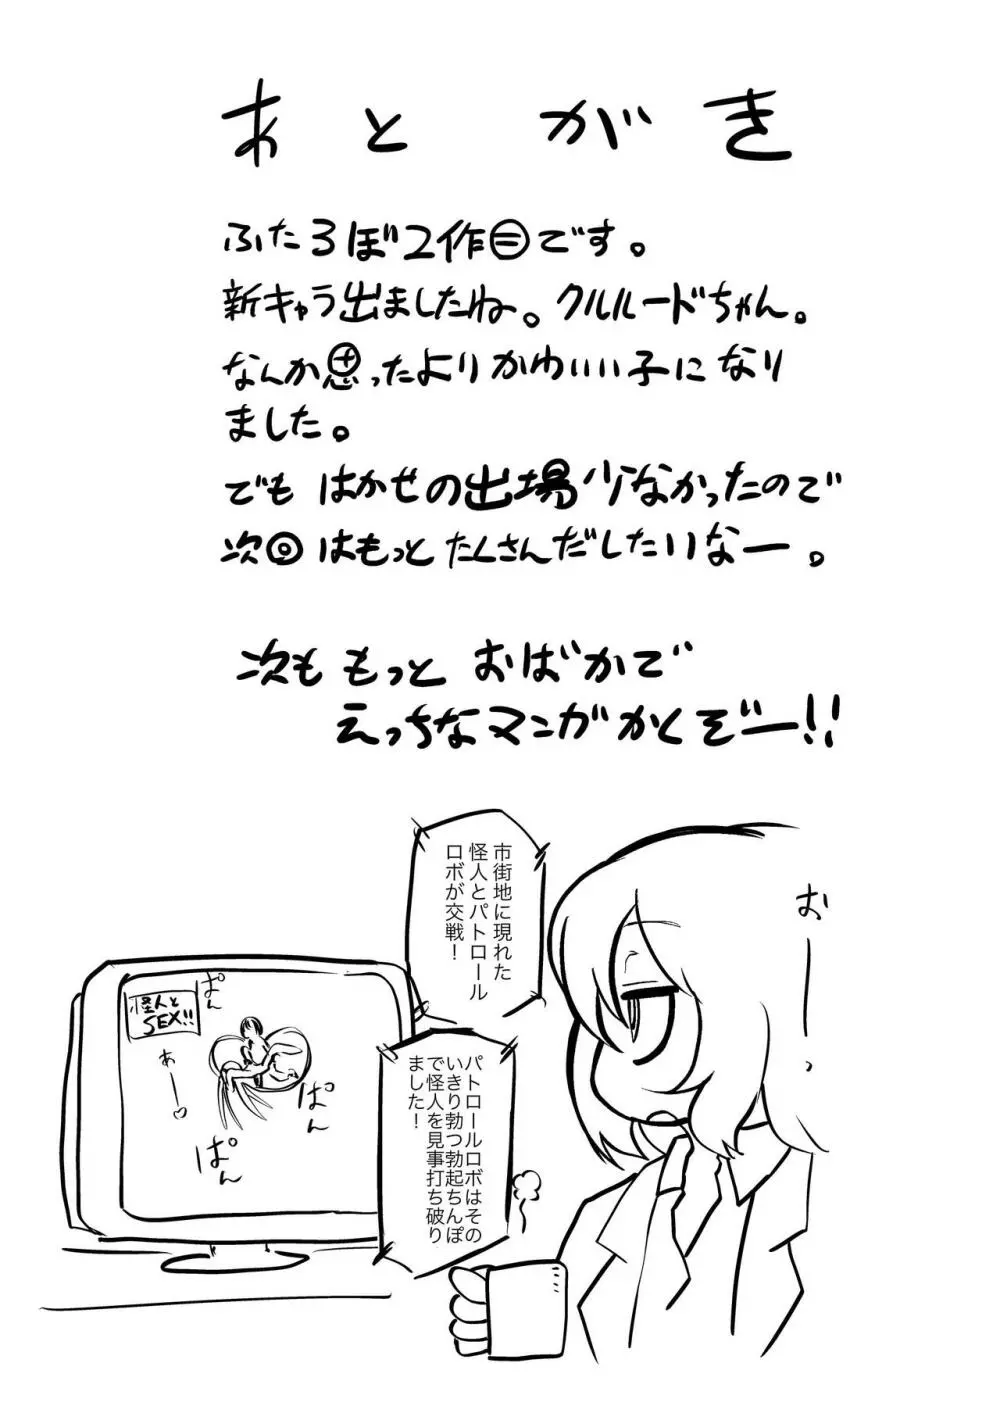 あとがき
ふたろぼ2作目です。
新キャラ出ましたね。クルルードちゃん。
なんか思ったよりかわいい子になり
ました。
でも はかせの出場少なかったので
次回はもっとたくさんだしたいなー。
次ももっとおばかで
えっちなマンガかくぞー!!
市街地に現れた
怪人とパトロール
ロボが交戦！
おーー。
パトロールロボはその
いきり勃つ勃起ちんぽ
で怪人を見事打ち破り
ました！
怪人と
SEX!!
ぱん
あー♡
ぱん
ぱん